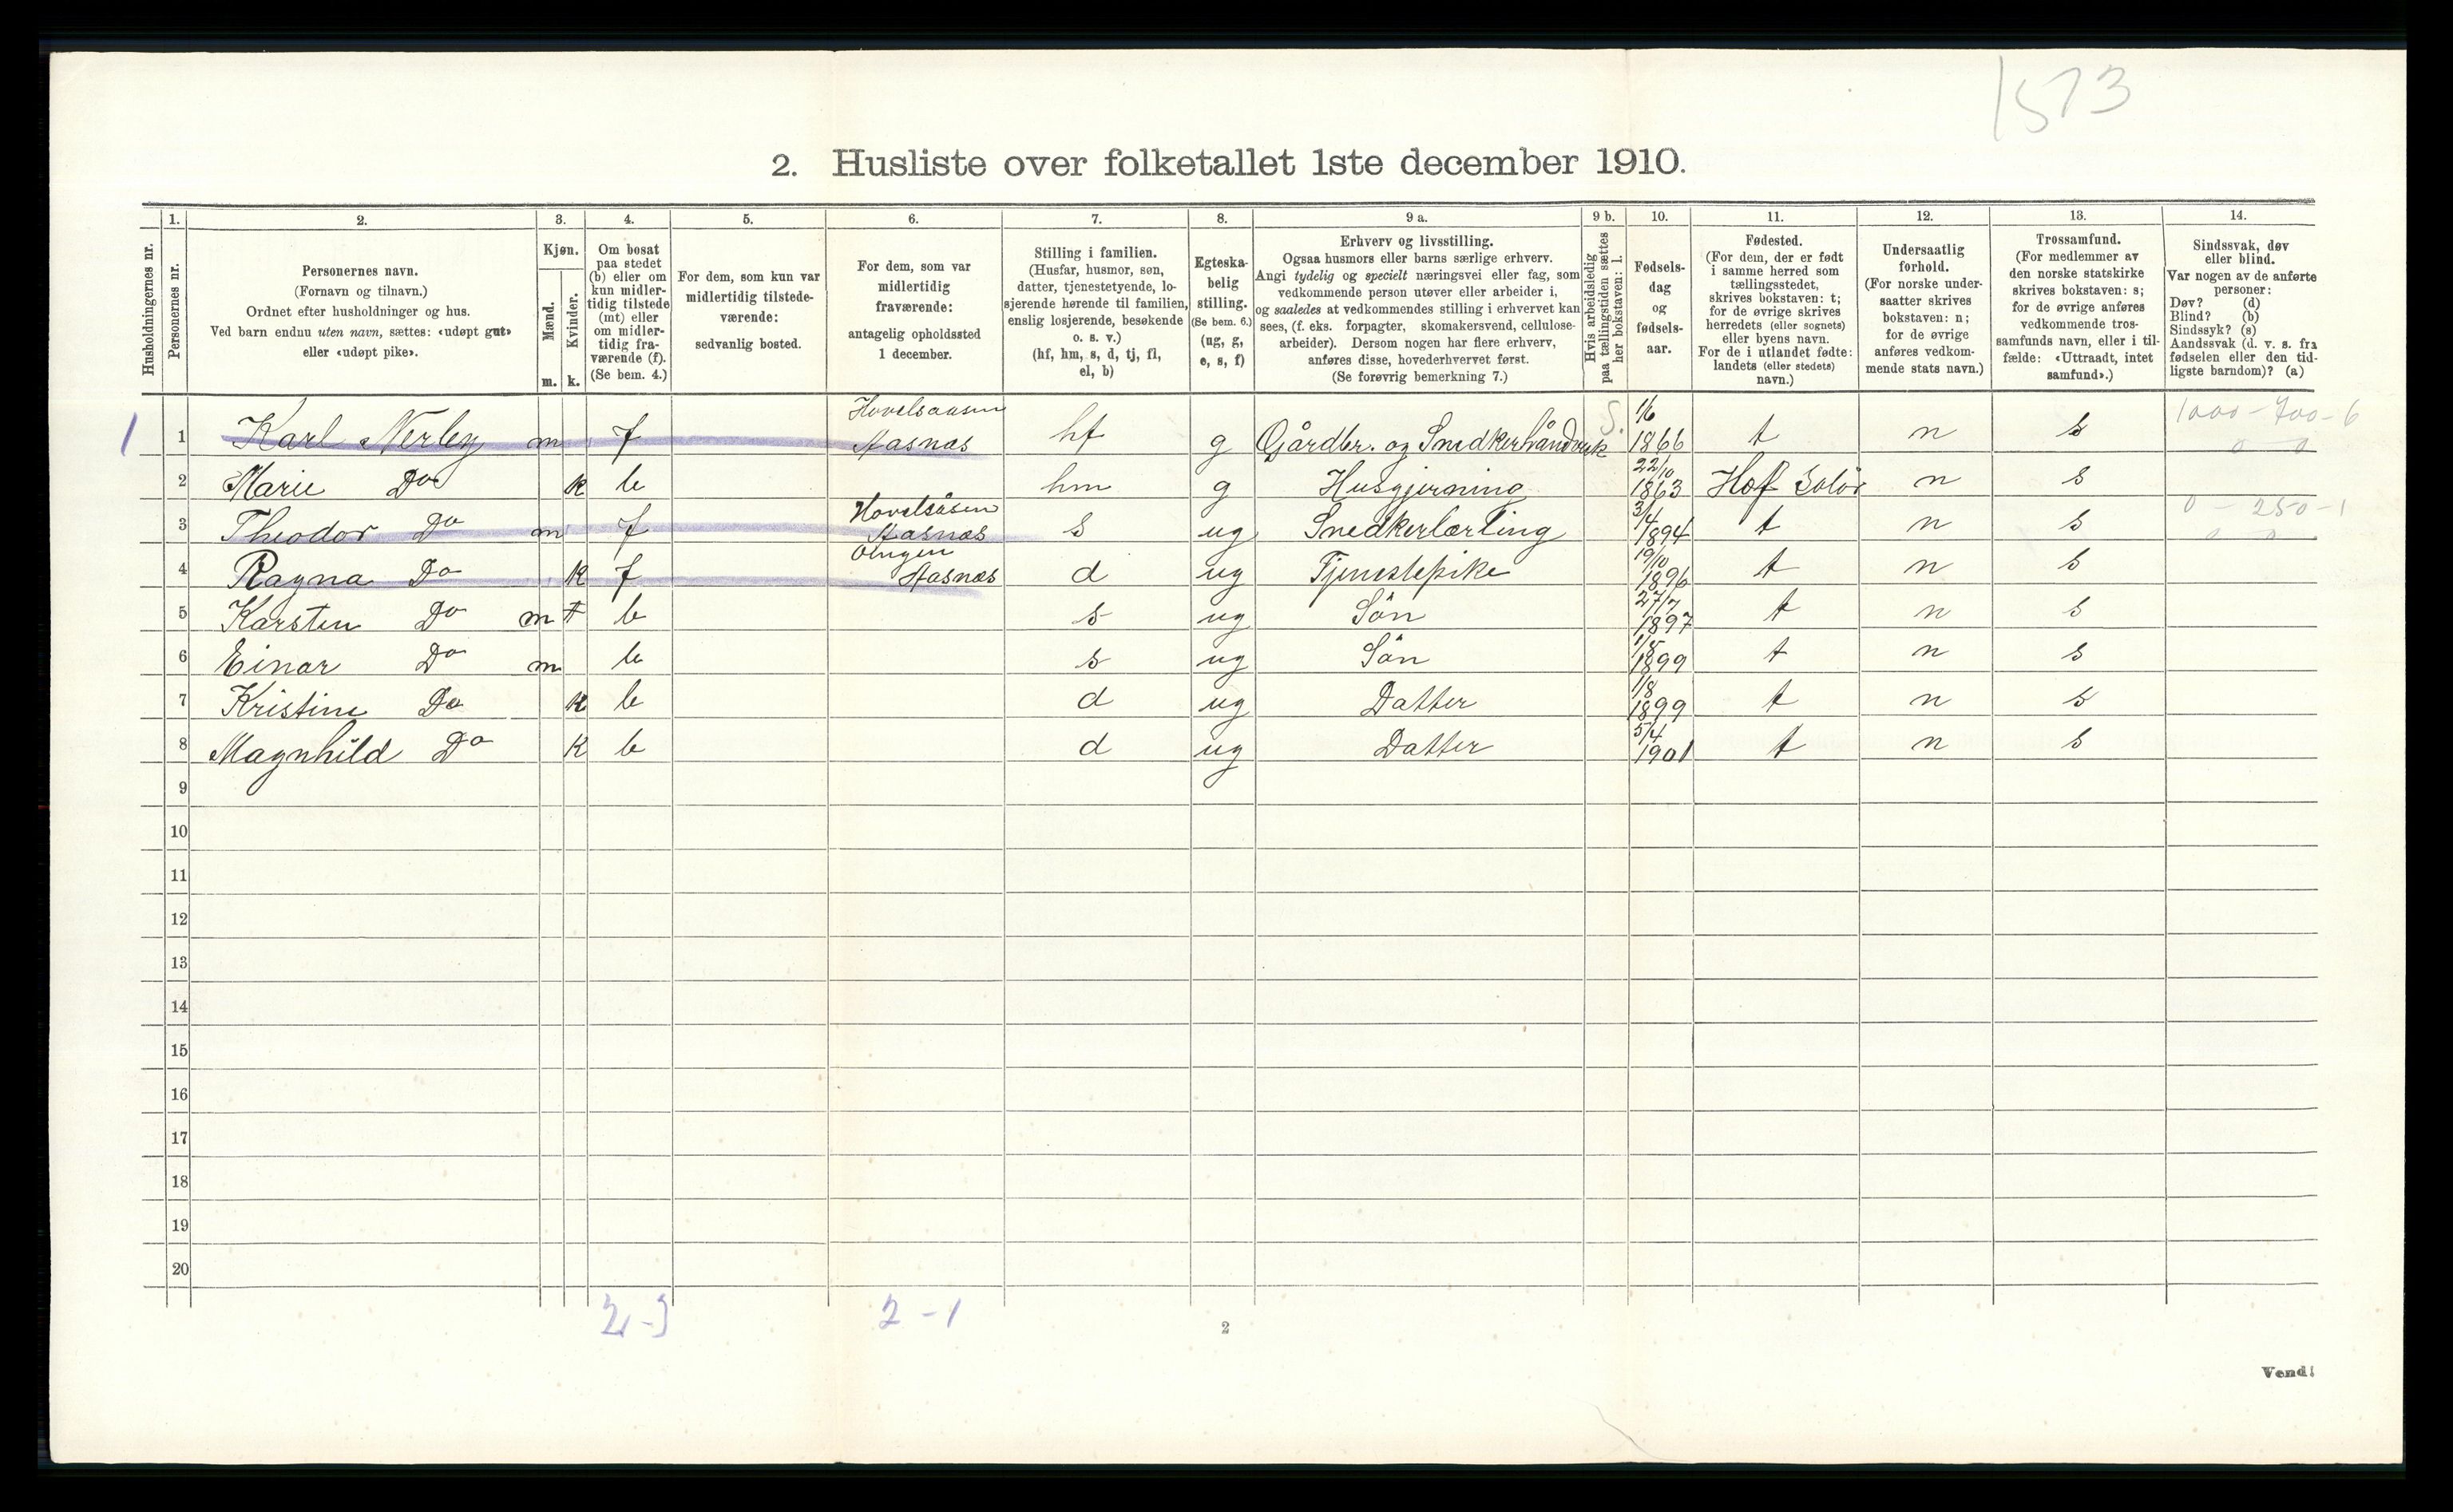 1573
2. Husliste over folketallet 1ste december 1910.
Husholdningernes nr.
1.
Personernes nr.
2.
Personernes navn.
(Fornavn og tilnavn.)
Ordnet efter husholdninger og hus.
Ved barn endnu uten navn, sættes: «udøpt gut»
eller «udøpt pike».
3.
Kjøn.
Mænd.
Kvinder.
m. k.
4.
Om bosat
paa stedet
(b) eller om
kun midler-
tidig tilstede
(mt) eller
om midler-
tidig fra-
værende (f).
(Se bem. 4.)
5.
For dem, som kun var
midlertidig tilstede-
værende:
sedvanlig bosted.
6.
For dem, som var
midlertidig
fraværende:
antagelig opholdssted
1 december.
7.
Stilling i familien.
(Husfar, husmor, søn,
datter, tjenestetyende, lo-
sjerende hørende til familien,
enslig losjerende, besøkende
o. s. v.)
(hf, hm, s, d, tj, fl,
el, b)
8.
Egteska-
belig
stilling.
(Se bem. 6.)
(ug, g,
e, s, f)
9 a.
Erhverv og livsstilling.
Ogsaa husmors eller barns særlige erhverv.
Angi tydelig og specielt næringsvei eller fag, som
vedkommende person utøver eller arbeider i,
og saaledes at vedkommendes stilling i erhvervet kan
sees, (f. eks. forpagter, skomakersvend, cellulose-
arbeider). Dersom nogen har flere erhverv,
anføres disse, hovederhvervet først.
(Se forøvrig bemerkning 7.)
9 b.
Hvis arbeidsledig
paa tællingstiden sættes
her bokstaven: l.
10.
Fødsels-
dag
og
fødsels-
aar.
11.
Fødested.
(For dem, der er født
i samme herred som
tællingsstedet,
skrives bokstaven: t;
for de øvrige skrives
herredets (eller sognets)
eller byens navn.
For de i utlandet fødte:
landets (eller stedets)
navn.)
12.
Undersaatlig
forhold.
(For norske under-
saatter skrives
bokstaven: n;
for de øvrige
anføres vedkom-
mende stats navn.)
13.
Trossamfund.
(For medlemmer av
den norske statskirke
skrives bokstaven: s;
for de øvrige anføres
vedkommende tros-
samfunds navn, eller i til-
fælde: «Uttraadt, intet
samfund».)
14.
Sindssvak, døv
eller blind.
Var nogen av de anførte
personer:
Døv? (d)
Blind? (b)
Sindssyk? (s)
Aandssvak (d. v. s. fra
fødselen eller den tid-
ligste barndom)? (a)
1 1 Karl Nerby m f Hovelsaasen Aasnæs hf g Gårdbr. og Snedkerhåndverk S. 1/6 1866 t n s 1000 - 700 - 6 0 0
2 Marie Do k b hm g Husgjerning 22/10 1863 Hof Solør n s
3 Theodor Do m f Hovelsåsen Aasnæs s ug Snedkerlærling 3/4 1894 t n s 0 - 250 - 1 0 0
4 Ragna Do k f Aasnæs d ug Tjenestepike 19/10 1896 t n s
5 Karsten Do m b s ug Sön 27/7 1897 t n s
6 Einar Do m b s ug Sön 1/8 1899 t n s
7 Kristine Do k b d ug Datter 1/8 1899 t n s
8 Magnhild Do k b d ug Datter 5/4 1901 t n s
9
10
11
12
13
14
15
16
17
18
19
20
2-3 2-1
2
Vend!